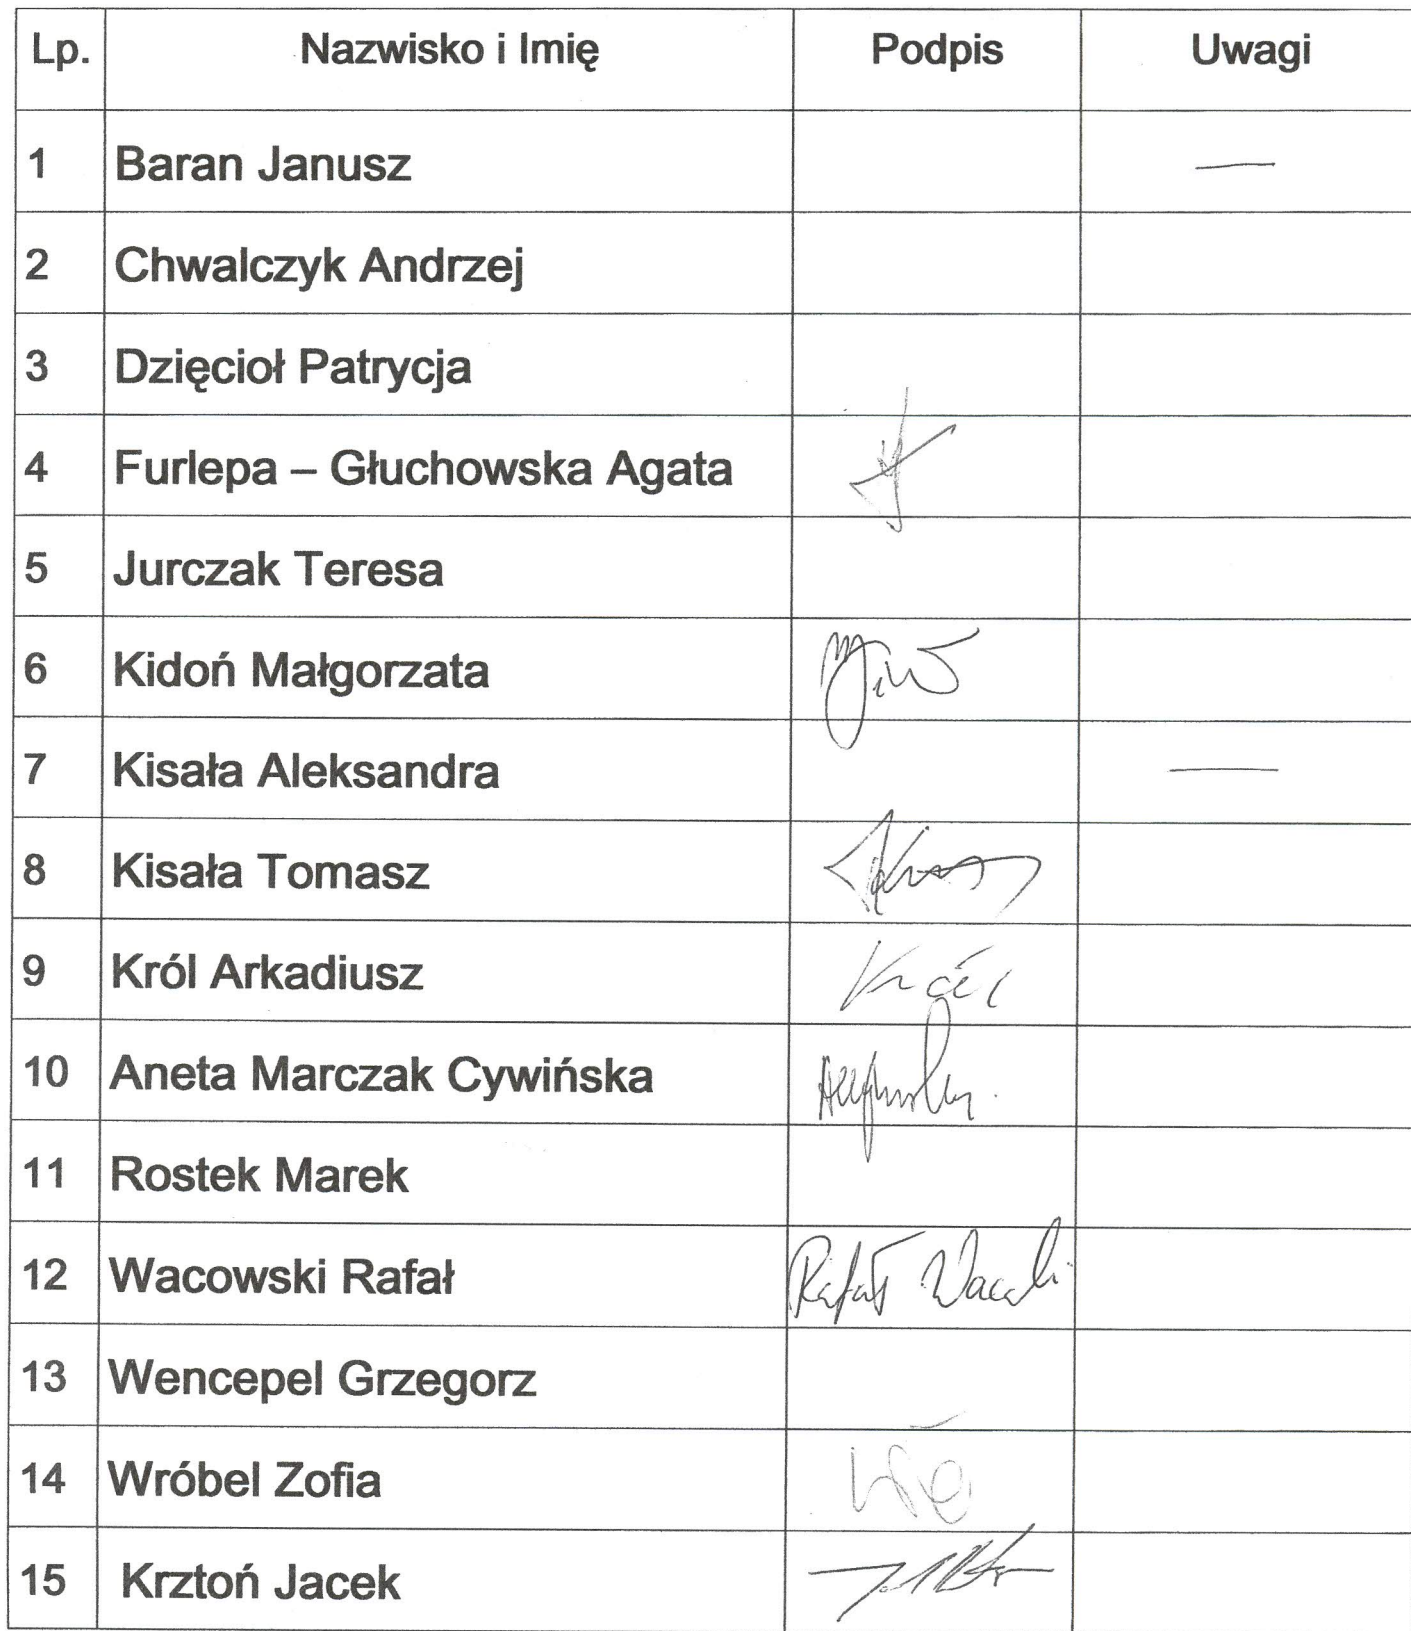 Lp. Nazwisko i Imię Podpis Uwagi
1 Baran Janusz —
2 Chwalczyk Andrzej
3 Dzięcioł Patrycja
4 Furlepa – Głuchowska Agata
5 Jurczak Teresa
6 Kidoń Małgorzata
7 Kisała Aleksandra —
8 Kisała Tomasz
9 Król Arkadiusz Król
10 Aneta Marczak Cywińska
11 Rostek Marek
12 Wacowski Rafał Rafał
13 Wencepel Grzegorz
14 Wróbel Zofia
15 Krztoń Jacek